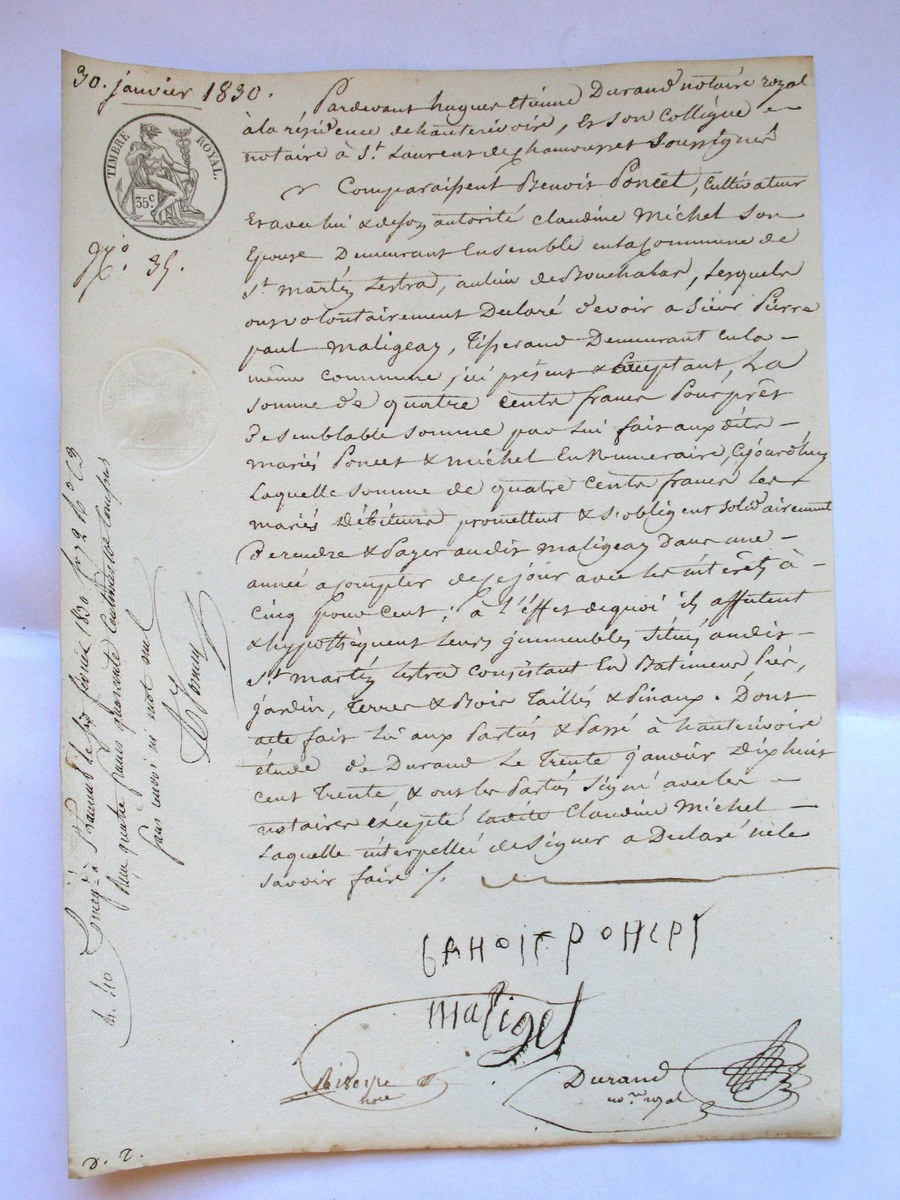 30. janvier 1830.
TIMBRE ROYAL.
35 c
N.o 35.
Pardevant hugues Etienne Durand notaire royal
à la résidence de hauterivoire, et son collègue
notaire à St. Laurent de Chamousset Soussignés
Comparaissent Benoit Poncet, Cultivateur
et avec lui & de son autorité Claudine Michel son
Epouse Demeurant Ensemble en la Commune de
St. martin Lestra, au lieu de Bouchalas, Lesquels
ont volontairement Declaré devoir a Sieur Pierre
paul Maligeay, Tisserand Demeurant en la
même commune, ici présent & acceptant, La
somme de quatre cents francs Pour prêt
de semblable somme par Lui fait aux dits
mariés Poncet & michel En Numeraire, Cejourdhuy
Laquelle somme de quatre cents francs Les
mariés Débiteurs promettent & s'obligent solidairement
De rendre & Payer audit maligeay Dans une
année a compter de ce jour avec les intérêts à
cinq pour cent; à l'éffet de quoi ils affectent
& hypothèquent Leurs immeubles Situés audit
St. martin Lestra consistant En Batiment Prés,
jardin, Terres & Bois Taillés & Pinaux. Dont
acte fait Lu aux Parties & Passé à hauterivoire
étude de Durand Le Trente janvier Dix huit
cent Trente & ont les Parties Signé avec les
notaires éxcepté ladite Claudine Michel
Laquelle interpellée de signer a Declaré ne le
savoir faire ./.
benoit poncet
maliget
noire
Durand
no.re royal
Enreg. à St Laurent le six février 1830 fo 72
quatre francs quarante centimes
sans renvoi ni mot nul
D. T.